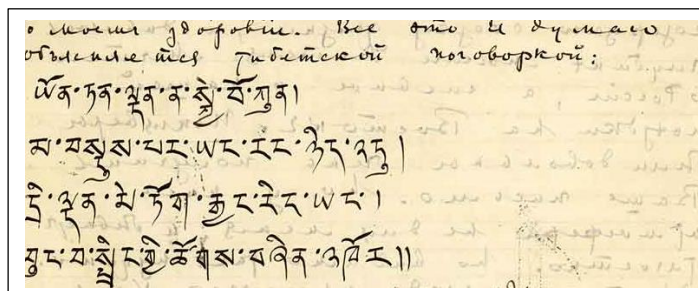 о моемъ здоровіи. Все это я думаю
объясняется тибетской поговоркой:
ཡོན་ཏན་ལྡན་ན་སྐྱེ་བོ་ཀུན།
མ་བསྡུས་པར་ཡང་རང་ཉིད་འདུ།
དྲི་ལྡན་མེ་ཏོག་རྒྱང་རིང་ཡང་།
བུང་བ་སྤྲིན་གྱི་ཚོགས་བཞིན་འཁོར།།